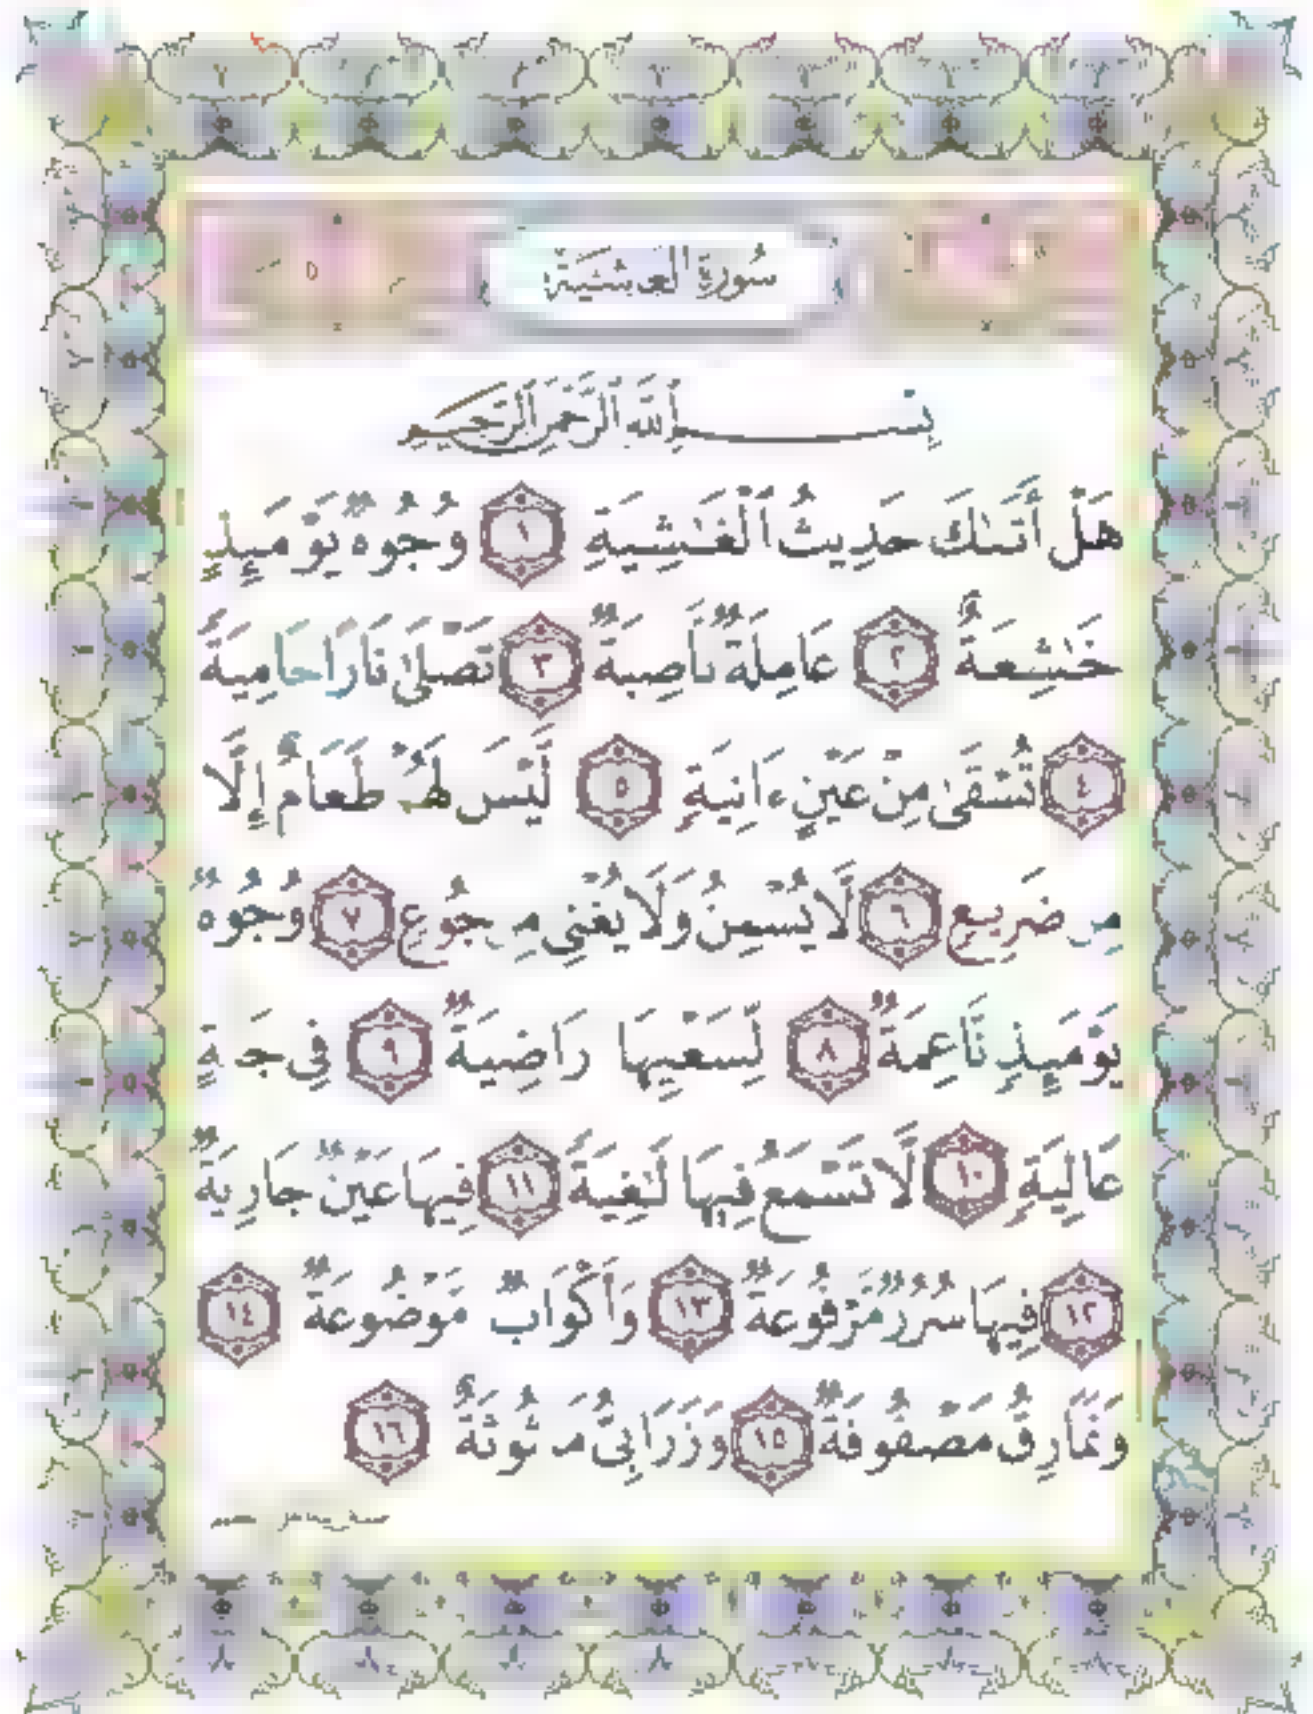 سُورَةُ الْغَاشِيَةِ
بِسْمِ ٱللَّهِ ٱلرَّحْمَٰنِ ٱلرَّحِيمِ
هَلْ أَتَىٰكَ حَدِيثُ ٱلْغَٰشِيَةِ ١ وُجُوهٌ يَوْمَئِذٍ
خَٰشِعَةٌ ٢ عَامِلَةٌ نَّاصِبَةٌ ٣ تَصْلَىٰ نَارًا حَامِيَةً
٤ تُسْقَىٰ مِنْ عَيْنٍ ءَانِيَةٍ ٥ لَّيْسَ لَهُمْ طَعَامٌ إِلَّا
مِن ضَرِيعٍ ٦ لَّا يُسْمِنُ وَلَا يُغْنِى مِن جُوعٍ ٧ وُجُوهٌ
يَوْمَئِذٍ نَّاعِمَةٌ ٨ لِّسَعْيِهَا رَاضِيَةٌ ٩ فِى جَنَّةٍ
عَالِيَةٍ ١٠ لَّا تَسْمَعُ فِيهَا لَٰغِيَةً ١١ فِيهَا عَيْنٌ جَارِيَةٌ
١٢ فِيهَا سُرُرٌ مَّرْفُوعَةٌ ١٣ وَأَكْوَابٌ مَّوْضُوعَةٌ ١٤
وَنَمَارِقُ مَصْفُوفَةٌ ١٥ وَزَرَابِىُّ مَبْثُوثَةٌ ١٦